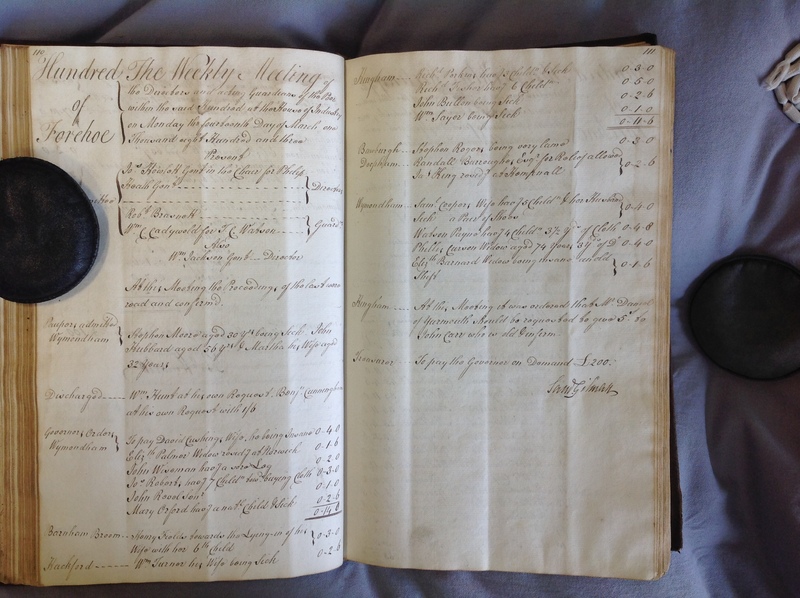 110
Hundred The Weekly Meeting of
of the Directors and acting Guardians of the Poor
within the said Hundred at the House of Industry
Forehoe on Monday the fourteenth Day of March one
Thousand eight Hundred and three
Present
in the Chair for Philip
Gent Director
Wm Cadywold for Watson Guardn
Also
Wm Jackson Gent Director
At this Meeting the Proceedings of the last were
read and confirmd.
Paupers admitted Stephen Moore aged 30 yrs being Sick John
Wymondham Hubbard aged 56 yrs & Martha his Wife aged
32 Years
Discharged Wm Hunt at his own Request Benjn Cunningham
at his own Request with 1/6
Governor Order To pay David Cushing Wife, he being Insane 0-4-0
Wymondham Elizth Palmer Widow resid at Norwich 0-1-6
John Wiseman havg a Leg 0-2-0
Jos Roberts havg 7 Childn two buying Cloth 0-3-0
John Senr 0-1-0
Mary Orford havg a natl Child & Sick 0-2-6
0-14-0
Barnham Broom Henry Fields towards the Lying-in of his
Wife with her 6th Child 0-3-0
Hackford Wm Turner his Wife being Sick 0-2-6
111
Hingham Richd Perkins havg 5 Childn & Sick 0-3-0
Richd havg 6 Childn 0-5-0
John Bullen being Sick 0-2-6
Wm Sayer being Sick 0-1-0
0-11-6
Bawburgh Stephen Roger being very lame 0-3-0
Deopham Randall Burroughes Esqr for Relief allowed
King resid at Hempnall 0-2-6
Wymondham Saml Cooper Wife havg 5 Childn & her Husband
Sick a Pair of Shoes 0-4-0
Watson Payne havg 4 Childn 3½ yds of Cloth 0-4-8
Phebe Carson Widow aged 74 Years 3 yds of Do 0-4-0
Elizth Barnard Widow being insane an old
Shift 0-1-6
Hingham At this Meeting it was ordered that Mr
of Yarmouth should be requested to give 5s to
John Carr who is old & infirm
Treasurer To pay the Governor on Demand £200: